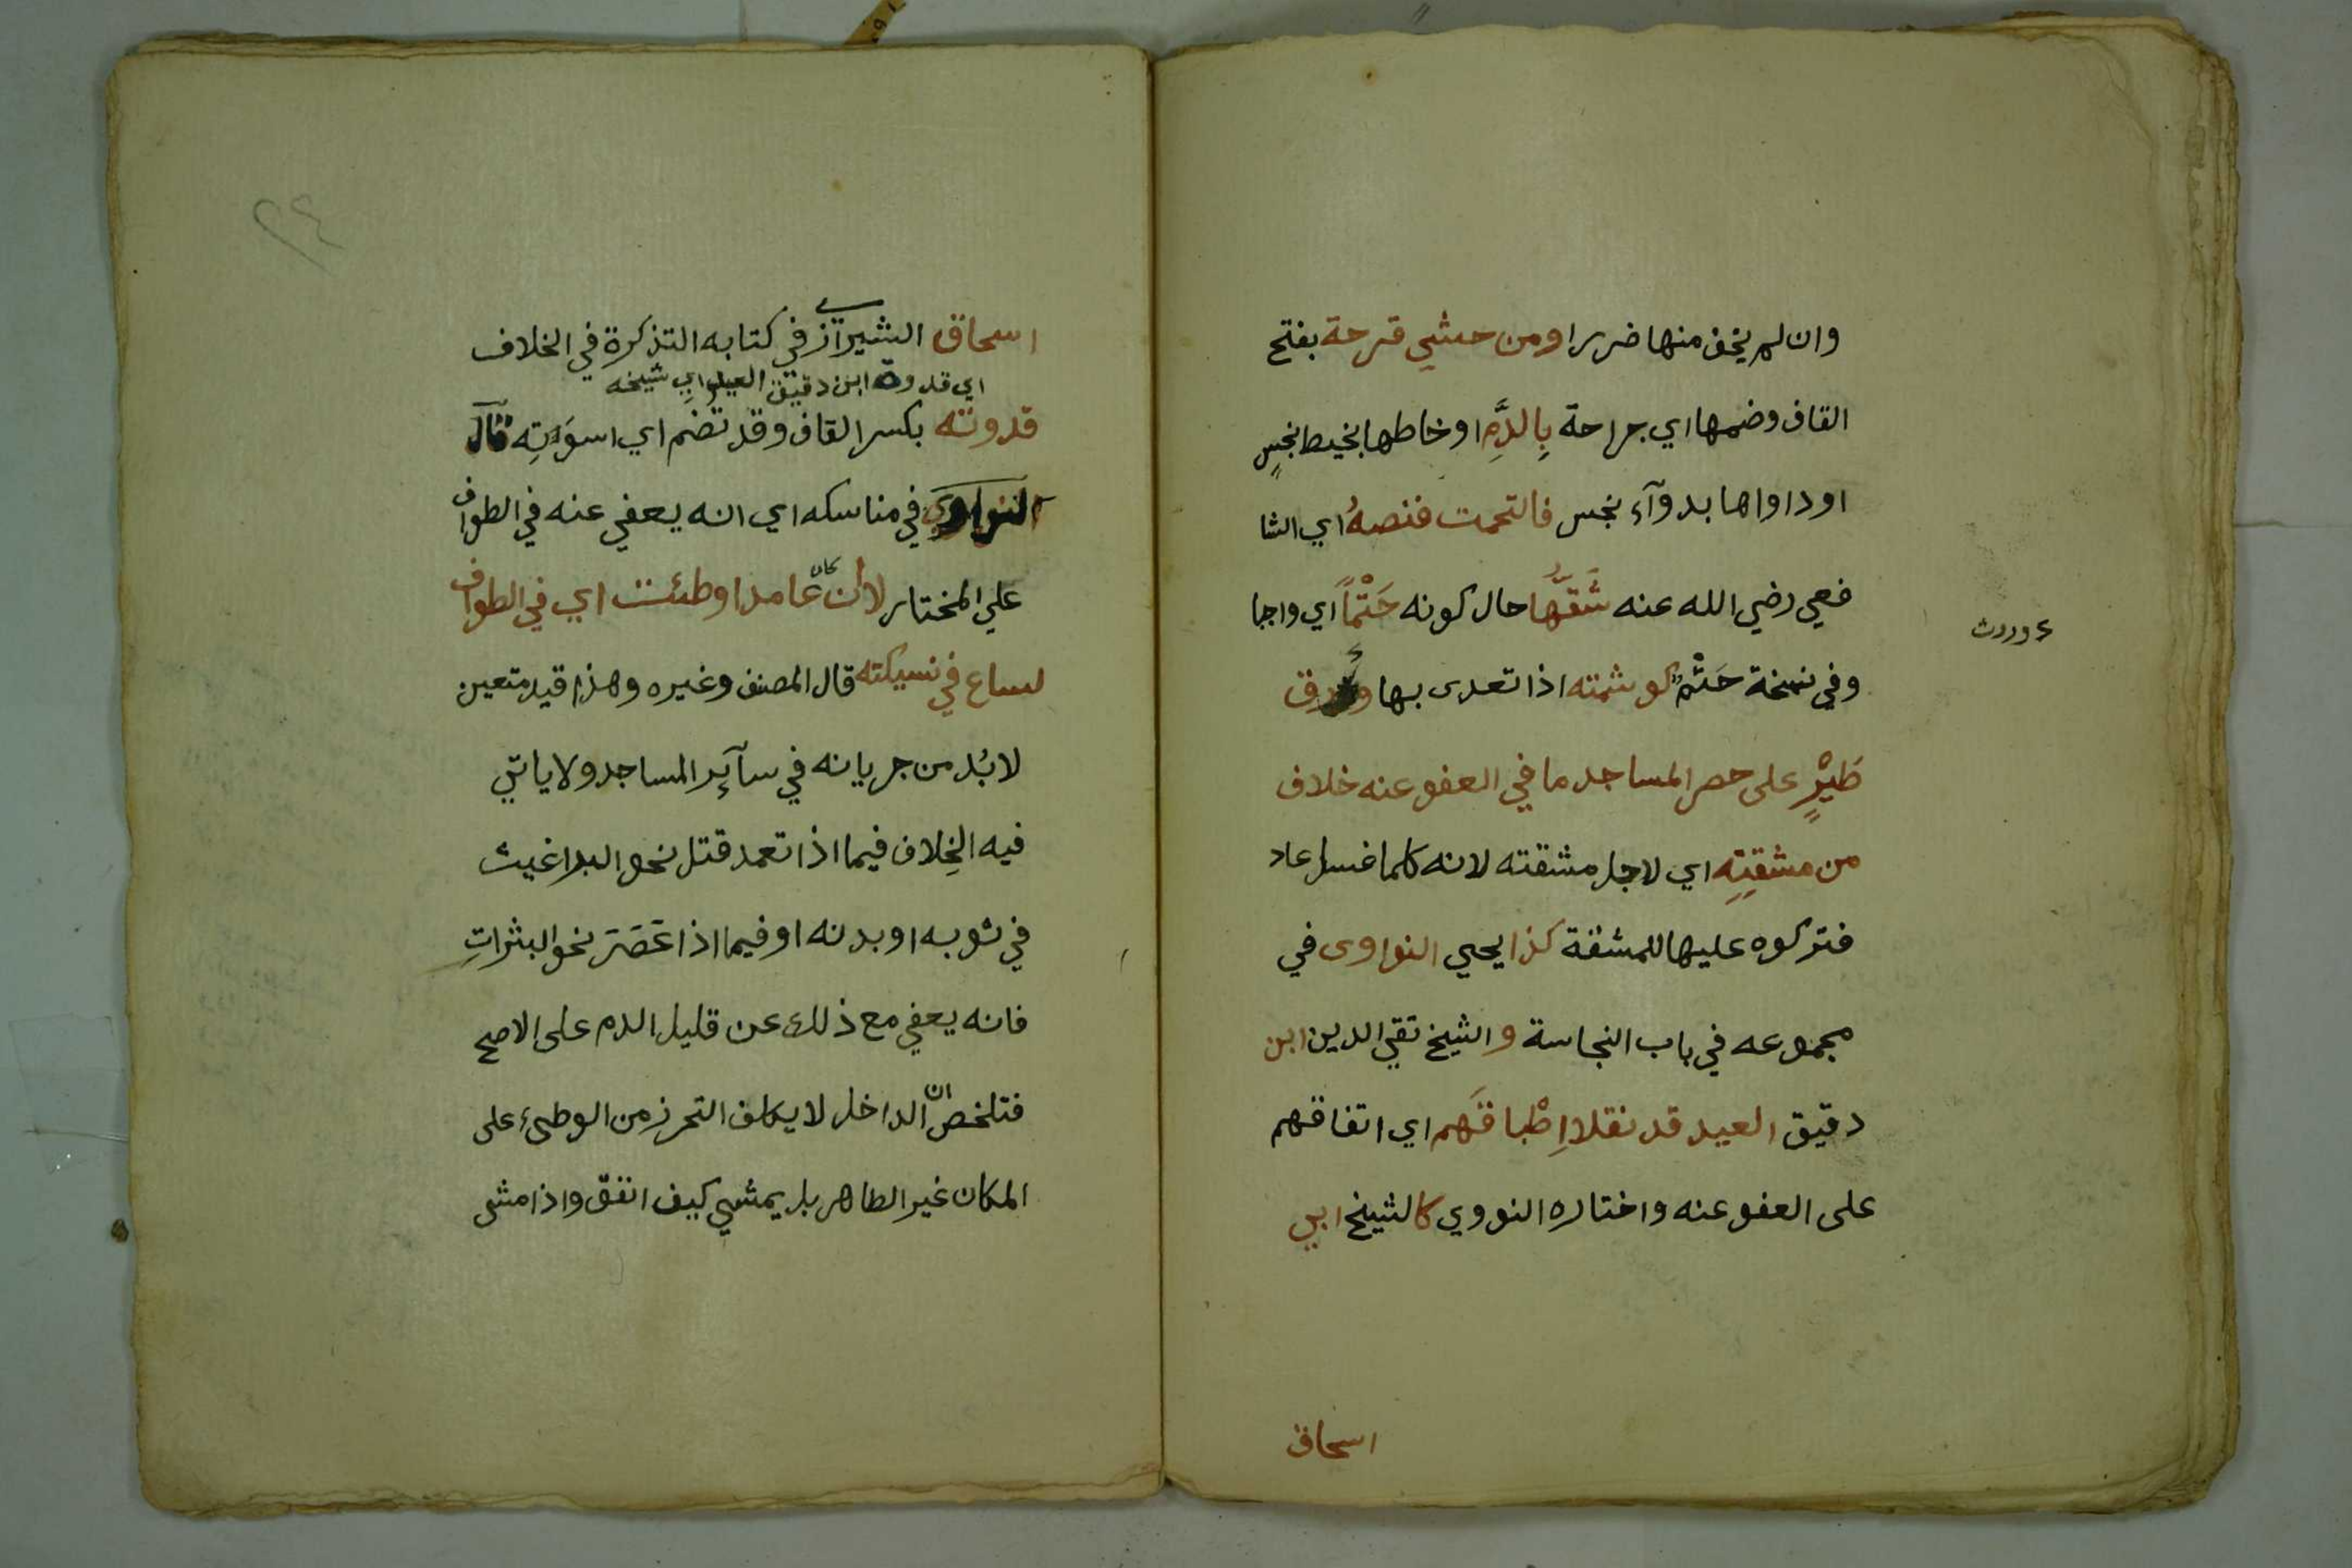 وان لم يخف منها ضررا ومن حشي قرحة بفتح
القاف وضمها اي جراحة بِالدَّمِ او خاطها بخيط نجسٍ
او داواها بدوآء نجس فالتحمت فنصهُ اي الشا
فعي رضي الله عنه شَقَّها حال كونه حَتْماً اي واجبا
وفي نسخة حَتْمٌ كوشمته اذا تعدى بها وذرق
ورردت
طَيْرٍ على حصر المساجد ما في العفو عنه خلاف
من مشقتِهِ اي لاجل مشقته لانه كلما غسل عاد
فتركوه عليها للمشقة كذا يحيي النواوى في
مجموعه في باب النجاسة والشيخ تقي الدين ابن
دقيق العيد قد نقلا اِطْباقَهم اي اتفاقهم
على العفو عنه واختاره النووي كالشيخ ابي
اسحاق
٢٤
اسحاق الشيرازي في كتابه التذكرة في الخلاف
اي قدوة ابن دقيق العيد اي شيخه
قدوته بكسر القاف وقد تضم اي اسوَتِه قال
النواوي في مناسكه اي انه يعفي عنه في الطواف
علي المختار لا ان كان عامدا وطئت اي في الطواف
لساع في نسيكته قال المصنف وغيره وهذا قيد متعين
لا بُد من جريانه في سآئِر المساجد ولا ياتي
فيه الخِلاف فيما اذا تعمد قتل نحو البراغيث
في ثوبه او بدنه او فيما اذا عَصَرَ نحو البثراتِ
فانه يعفي مع ذلك عن قليل الدم على الاصح
فتلخص ان الداخل لا يكلف التحرز من الوطىء على
المكان غير الطاهر بل يمشي كيف اتفق واذا مشى